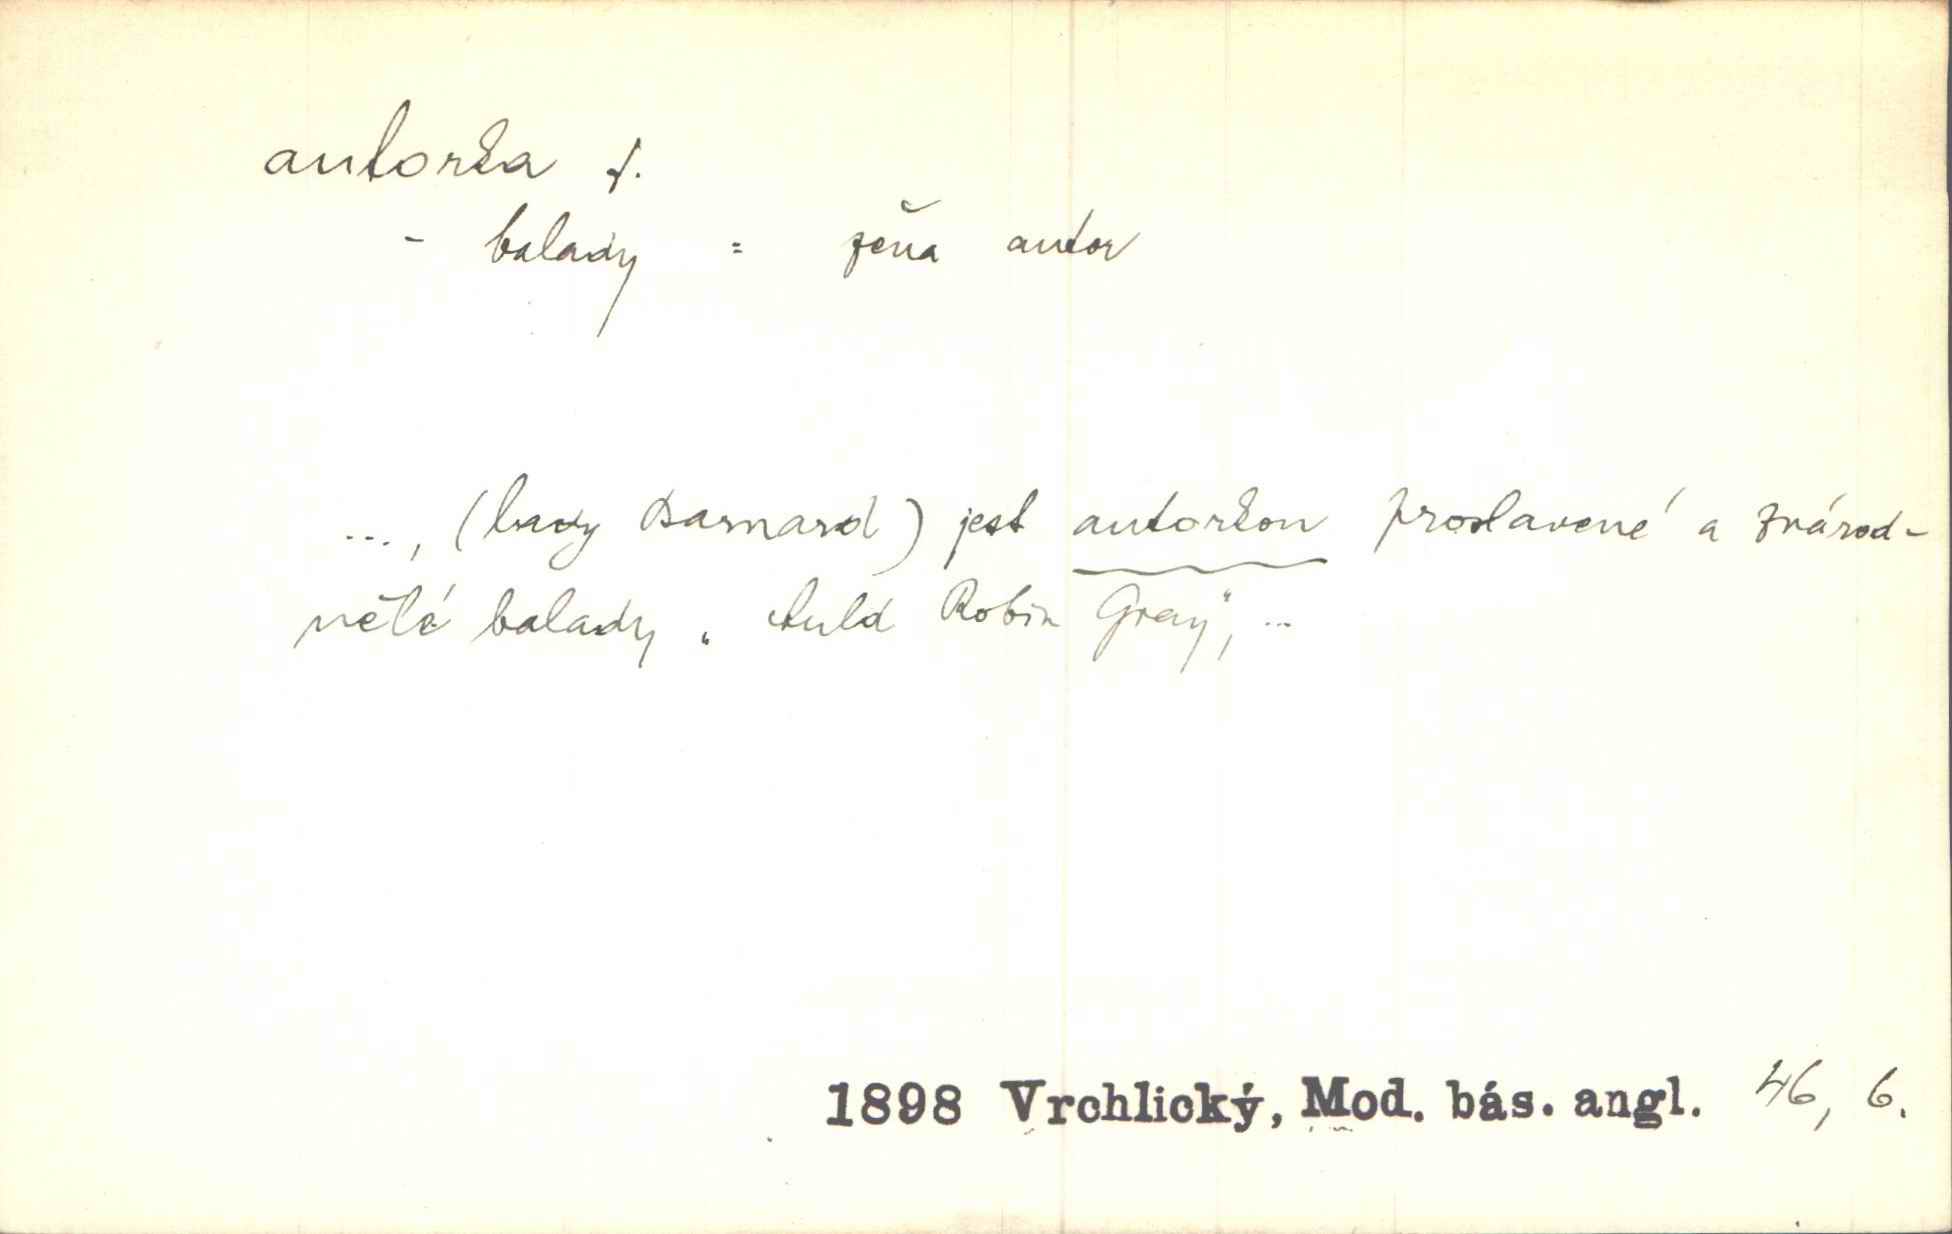 autorka f.
- balady = žena autor
..., (lady Barnard) jest autorkou proslavené a znárod-
nělé balady „Auld Robin Gray“, ...
1898 Vrchlický, Mod. bás. angl. 46, 6.